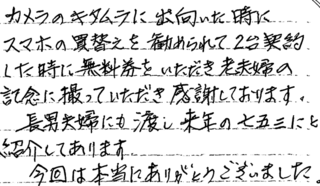 カメラのキタムラに出向いた時に
スマホの買替えを勧められて2台契約
した時に無料券をいただき老夫婦の
記念に撮っていただき感謝しております。
長男夫婦にも渡し来年の七五三にと
紹介してあります
今回は本当にありがとうございました。